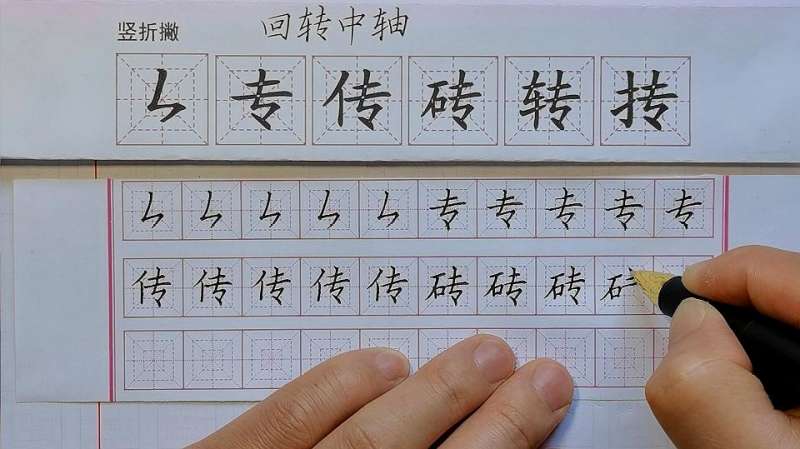 竖折撇 回转中轴
ㄣ 专 传 砖 转 抟
ㄣ ㄣ ㄣ ㄣ ㄣ 专 专 专 专 专
传 传 传 传 传 砖 砖 砖